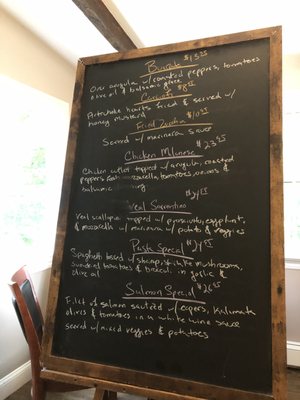 Burrata $13.95
Over arugula w/ roasted peppers, tomatoes
olive oil & balsamic glaze
Carciofi $8
Artichoke hearts fried & served w/
honey mustard
Fried Zucchini $10
Served w/ marinara sauce
Chicken Milanese $23.95
Chicken cutlet topped w/ arugula, roasted
peppers, mozzarella, tomatoes, onions &
balsamic
Veal Sorrentino
Veal scallopini topped w/ prosciutto, eggplant,
& mozzarella w/ marinara w/ potato & veggies
Pasta Special $24
Spaghetti tossed w/ shrimp, shiitake mushrooms,
sundried tomatoes & broccoli in garlic &
olive oil
Salmon Special $26
Filet of salmon sauteed w/ capers, kalamata
olives & tomatoes in a white wine sauce
served w/ mixed veggies & potatoes